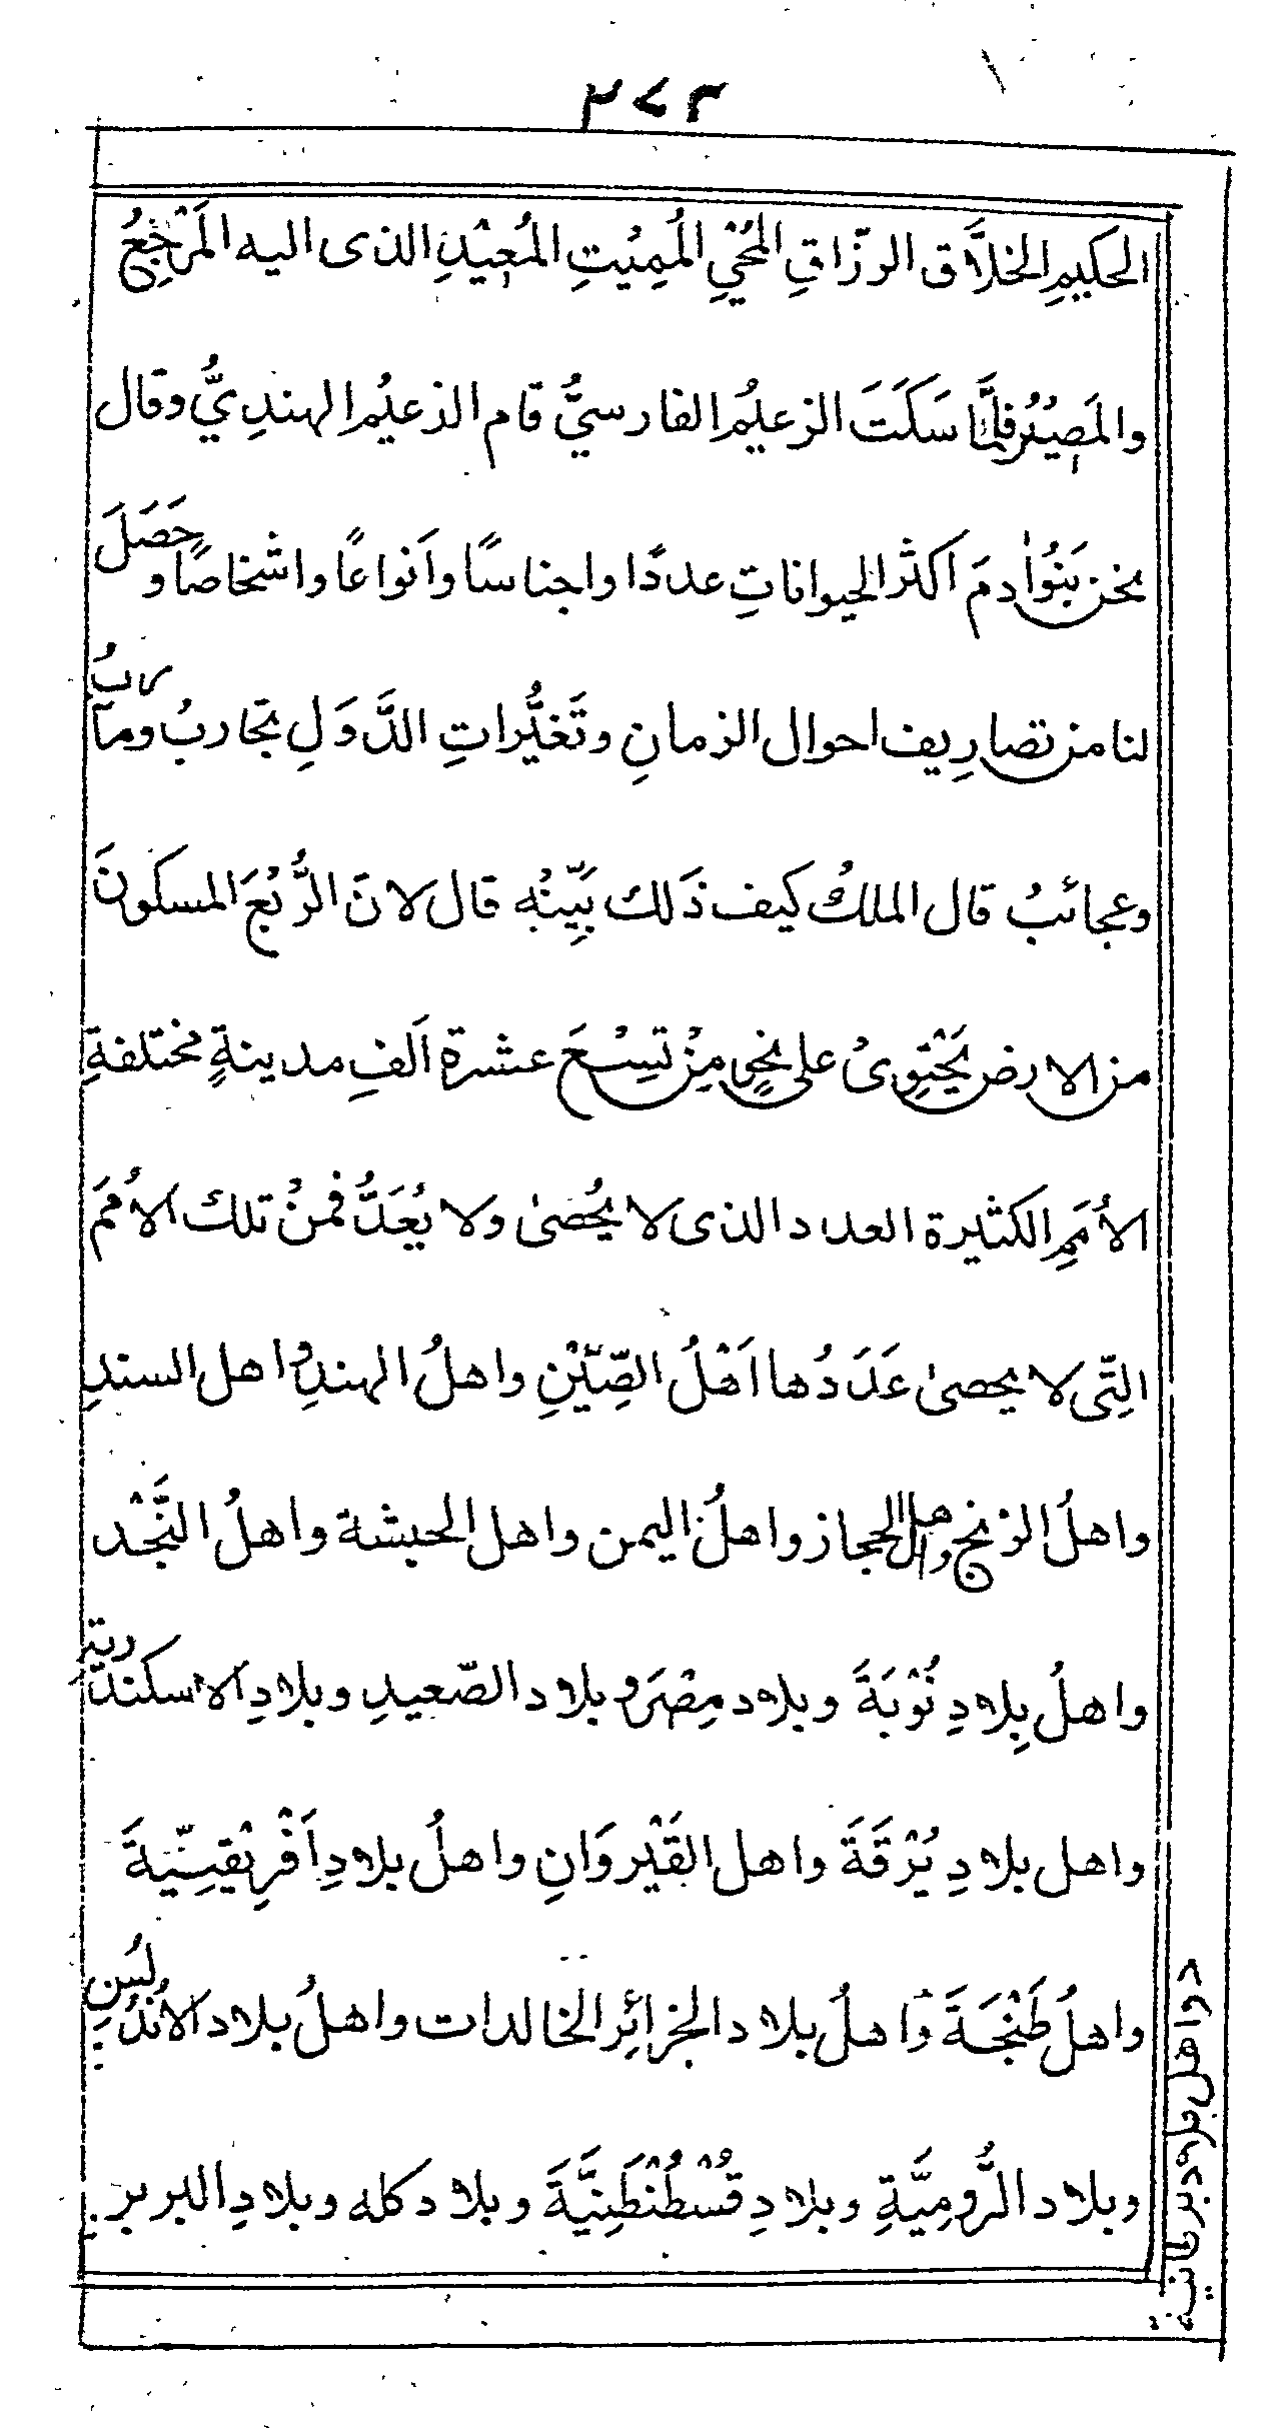 ٢٧٣
الحكيمِ الخلَّاق الرزّاقِ المُحْيِ المُمِيْتِ المُعِيْدِ الذى اليه المَرْجِعُ
والمَصِيْرُ فلمَّا سَكَتَ الزعيمُ الفارسيُّ قام الزعيمُ الهندِيُّ وقال
نحن بَنُوْا ادمَ اكثرُ الحيواناتِ عددًا واجناسًا واَنواعًا واشخاصًا وحَصَلَ
لنا من تصارِيف احوال الزمانِ وتَغيُّراتِ الدَّوَلِ تجاربُ ومآربُ
وعجائبُ قال الملكُ كيف ذَلك بَيِّنْهُ قال لانَ الرُّبْعَ المسكونَ
من الارض يَحْتَوِىْ على نحوٍ مِنْ تسِعَ عشرةَ اَلفِ مدينةٍ مختلفةِ
الأُمَمِ الكثيرة العدد الذى لا يُحصىٰ ولا يُعَدُّ فمنْ تلك الأُممَ
التِّى لا يحصىٰ عَدَدُها اَهْلُ الصِّيْنِ واهلُ الهندِ واهل السندِ
واهلُ الزنج واهل الحجاز واهلُ اليمن واهل الحبشة واهلُ النَّجْد
واهلُ بِلادِ نُوْبَةَ وبلاد مِصْرَ وبلاد الصّعيدِ وبلادِ الاسكندريّة
واهل بلادِ بَرْقَةَ واهل القَيْروَانِ واهلُ بلادِ اَفْرِيْقِيّةَ
واهلُ طَنْجَةَ وَاهلُ بلاد الجزائِر الخالدات واهلُ بلاد الاُندُلُسِ
وبلاد الرُّومِيَّةِ وبلادِ قُسْطُنْطَنِيَّةَ وبلاد كله وبلادِ البربر
واهل بلاد بر طانية